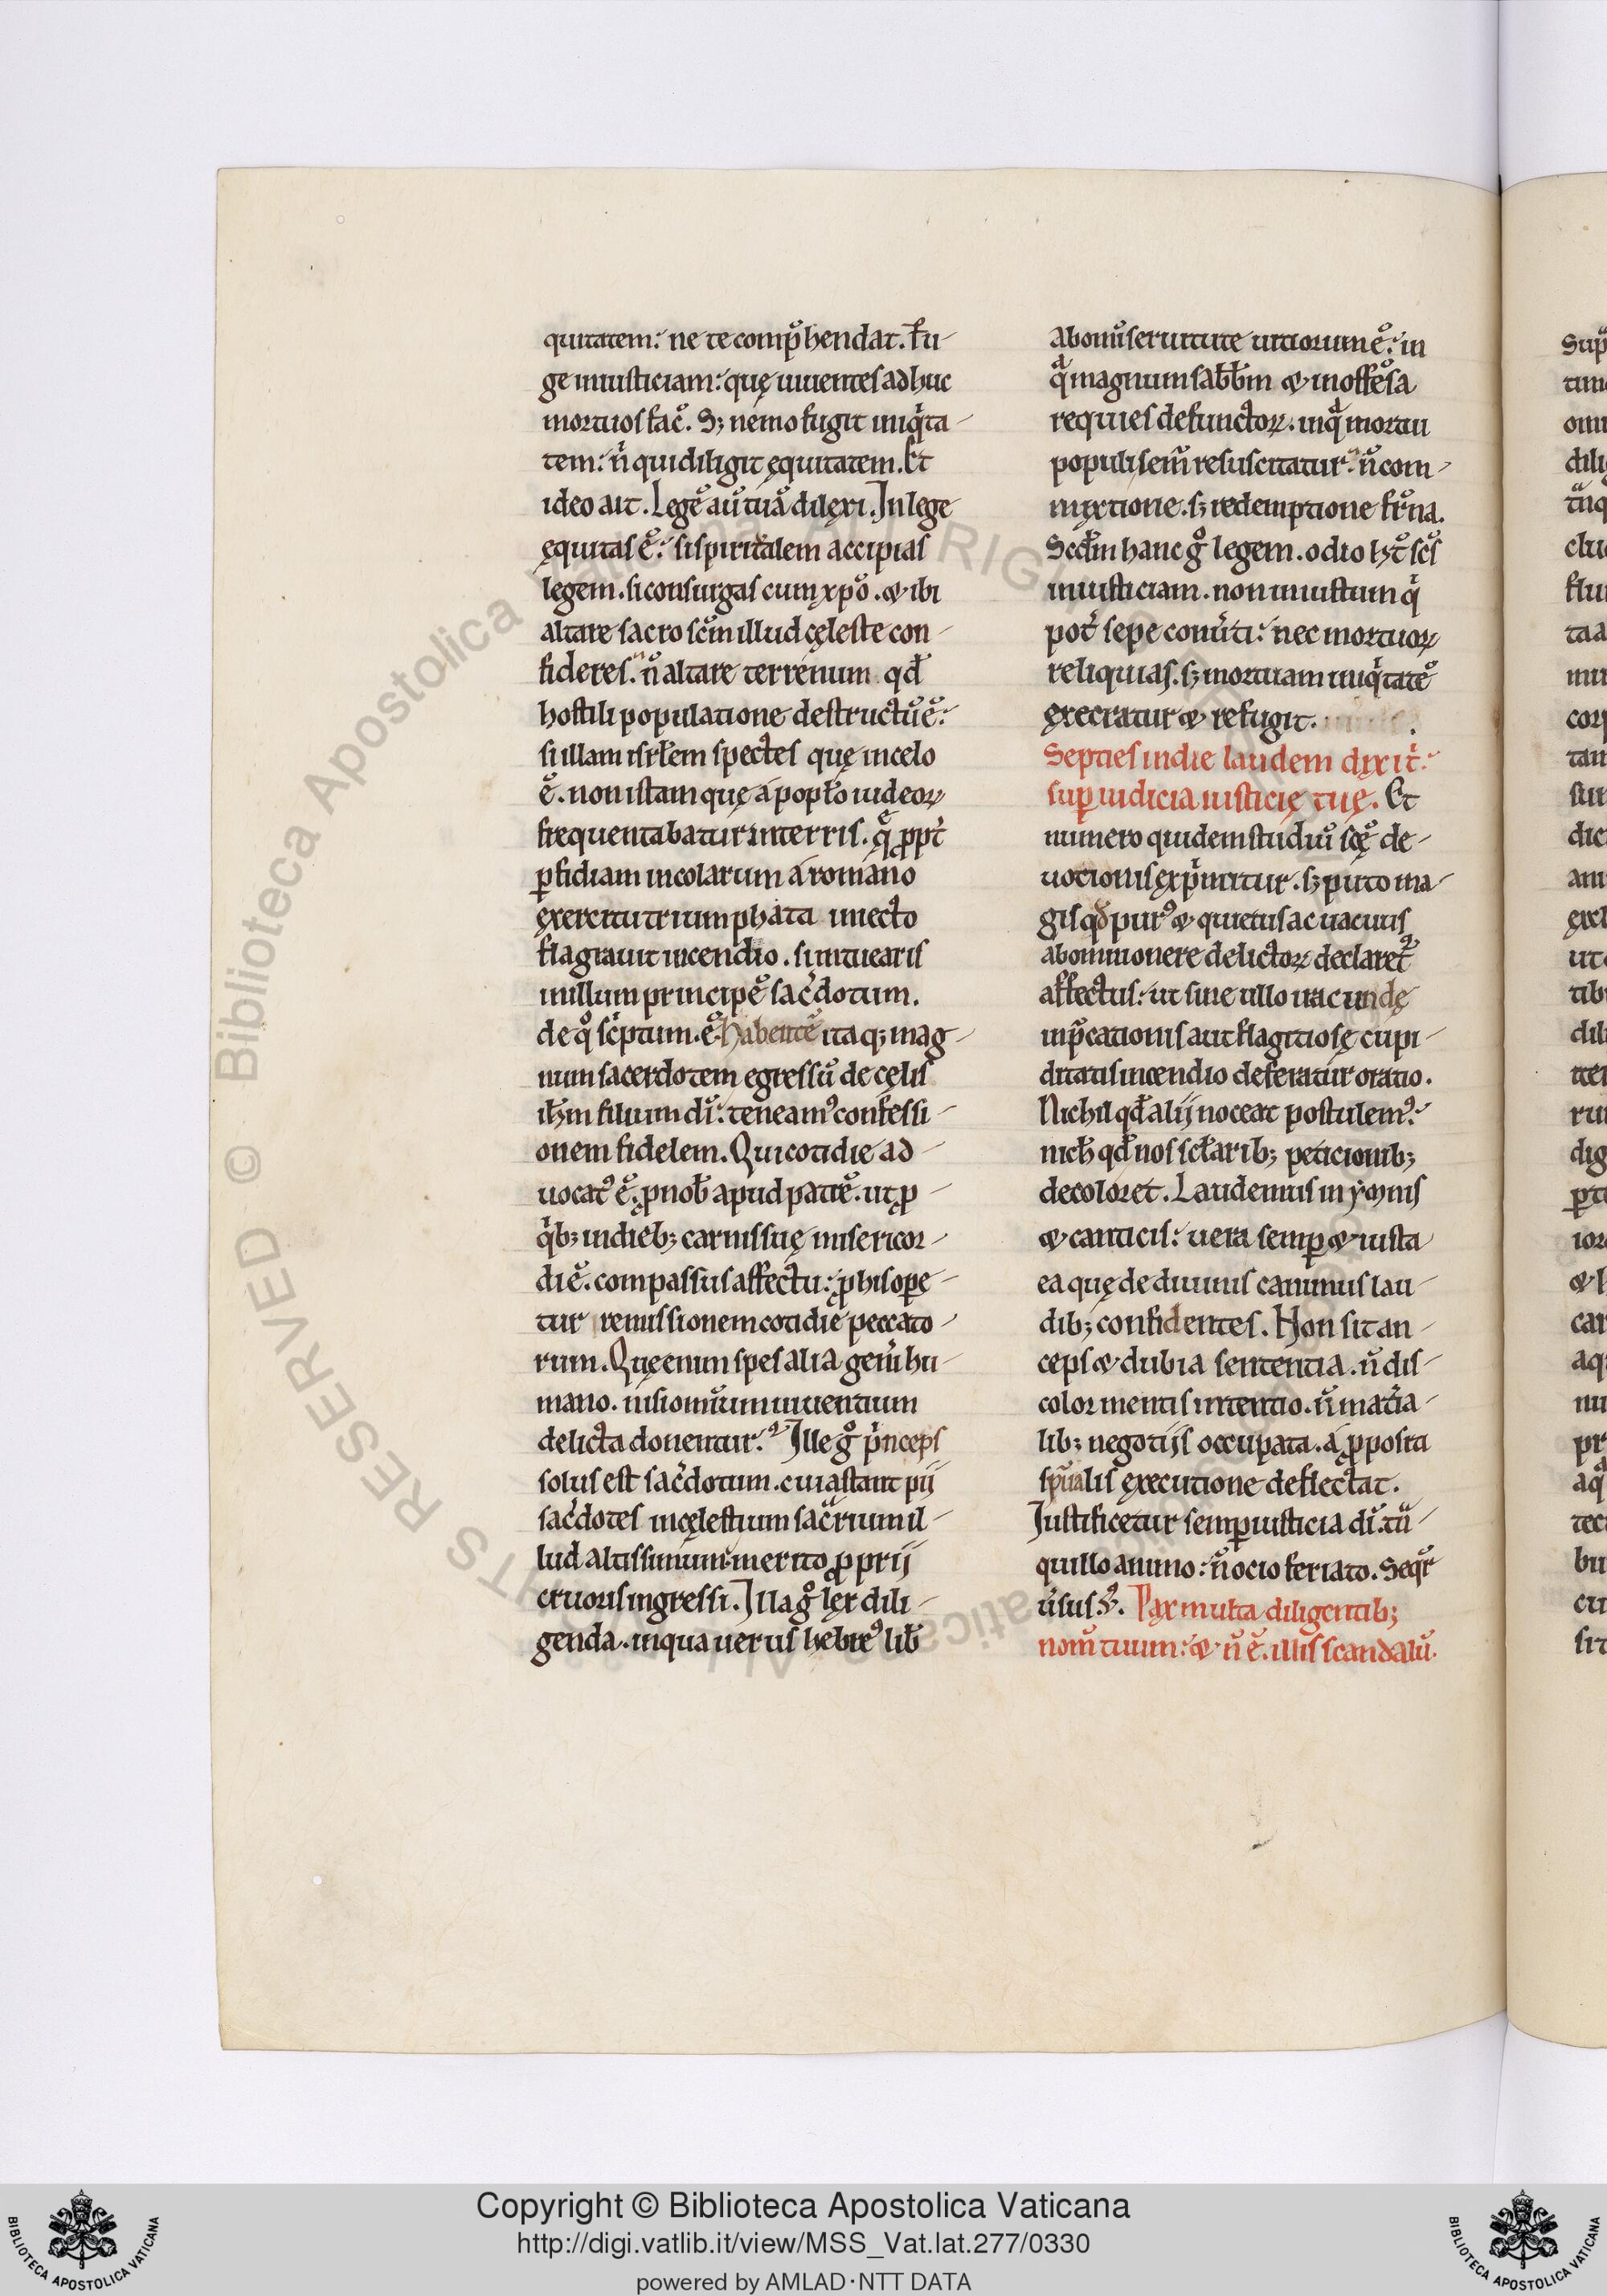 quitatem: ne te comp̄hendat. Fu-
ge iniusticiam: quę uiuentes adhuc
mortuos fac̄. S; nemo fugit iniqͥta-
tem: nͥ qui diligit ęquitatem. Et
ideo ait. Legē aū tuā dilexi. In lege
ęquitas ē: si spiritalem accipias
legem. si consurgas cum xp̄o. & ibi
altare sacrosc̄m illud cęleste con-
fideres. n̄ altare terrenum qđ
hostili populatione destructū ē:
si illam isrl̄em spectes quę in celo
ē. non istam quę a popl̄o iudeoꝝ
frequentabatur in terris. q̄ ꝓpt̄
ꝑfidiam incolarum a romano
exercitu triumphata inuecto
flagrauit incendio. si intuearis
in illum principē sac̄dotum.
de qͦ sc̄ptum. ē. Habentē itaq; mag-
num sacerdotem egressū de cęlis
ih̄m filium dī: teneamꝰ confessi-
onem fidelem. Qui cotidie ad-
uocatꝰ ē. ꝓ nob̄ apud patrē. ut ꝓ
qͥb; in dieb; carnis suę misericor-
dię. compassus affectu: ꝓ his ope-
tur remissionem cotidie pecca​to-
rum. Quę enim spes alia gen̄i hu-
mano. nisi om̄ium uiuentium
delicta donentur. Ille gͦ pͥnceps
solus est sac̄dotum. cui astant pii
sac̄dotes in cęlestium sac̄rium il-
lud altissimum merito ꝓprij
cruoris ingressi. Illa gͦ lex dili-
genda. in qua uerus hebreꝰ lib̄
a bonū seruitute uitiorum ē: in
qͣ magnum sab̄b̄m & inoffēsa
requies defunctoꝝ. in qͣ mortui
populi sem̄ resuscitatur. n̄ com-
mixtione. s; redemptione fr̄na.
Scđm hanc gͦ legem. odio ht̄ sc̄s
iniusticiam. non iniustum qͥ
pot̄ sepe conūti: nec mortuoꝝ
reliquias. s; mortuam iniqͥtatē
execratur & refugit.
Septies in die laudem dixi t̄:
suꝑ iudicia iusticię tuę. Et
numero quidem studiū sc̄ę de-
uotionis exp̄mitur. s; puto ma-
gis qđ purꝰ & quietus ac uacuus
ab omni onere delictoꝝ declaret᷑
affectus: ut sine ullo iracundę
inp̄cationis aut flagitiosę cupi-
ditatis incendio deferatur oratio.
Nichil qđ alij noceat postulemꝰ:
nich̄ qđ nos sc̄l̄arib; peticionib;
decoloret. Laudemus in ẏmnis
& canticis: uera semꝑ & iusta
ea quę de diuinis canimus lau-
dib; confidentes. Non sit an-
ceps & dubia sententia. n̄ dis-
color mentis intentio. n̄ mat̄ia-
lib; negotijs occupata. a ꝓposita
sp̄ualis executione deflectat.
Iustificetur semꝑ iusticia dī. tū-
quillo animo: n̄ ocio feriato. Seqr̄
ūsus. Pax multa diligentib;
nom̄ tuum: & n̄ ē. illis scandalū.
Copyright © Biblioteca Apostolica Vaticana
http://digi.vatlib.it/view/MSS_Vat.lat.277/0330
powered by AMLAD·NTT DATA